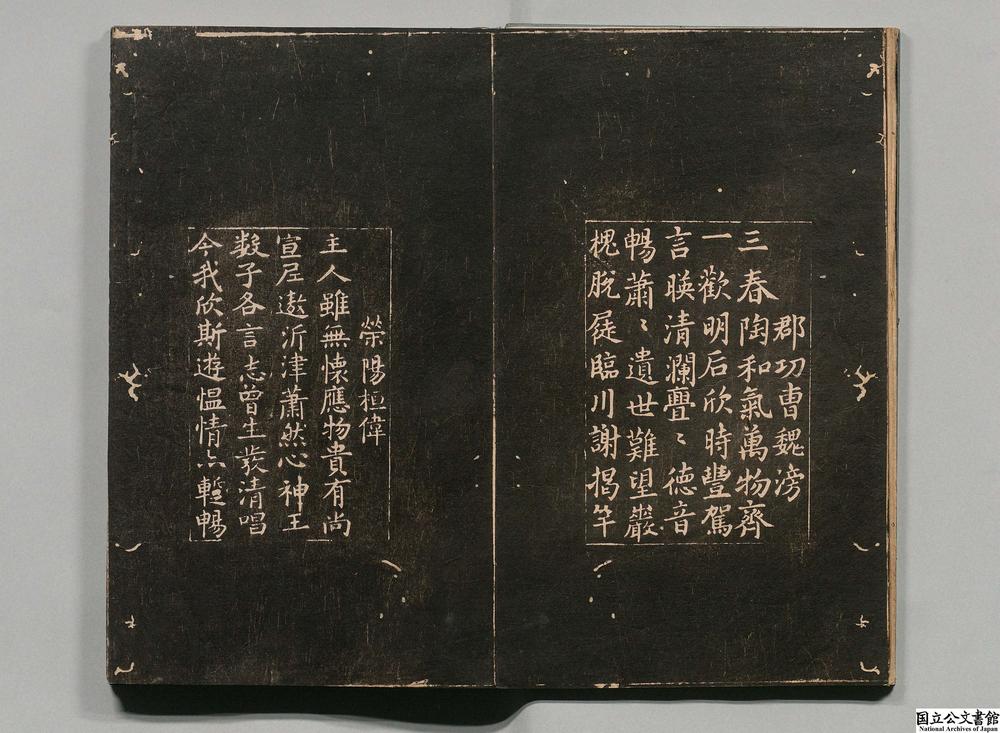 郡功曹魏滂
三春陶和氣萬物齊
一歡明后欣時豐駕
言暎清瀾亹〻德音
暢蕭〻遺世難望巖
愧脫屣臨川謝揭竿
榮陽桓偉
主人雖無懷應物貴有尚
宣尼遨沂津蕭然心神王
數子各言志曾生發清唱
今我欣斯遊慍情亦蹔暢
国立公文書館
National Archives of Japan